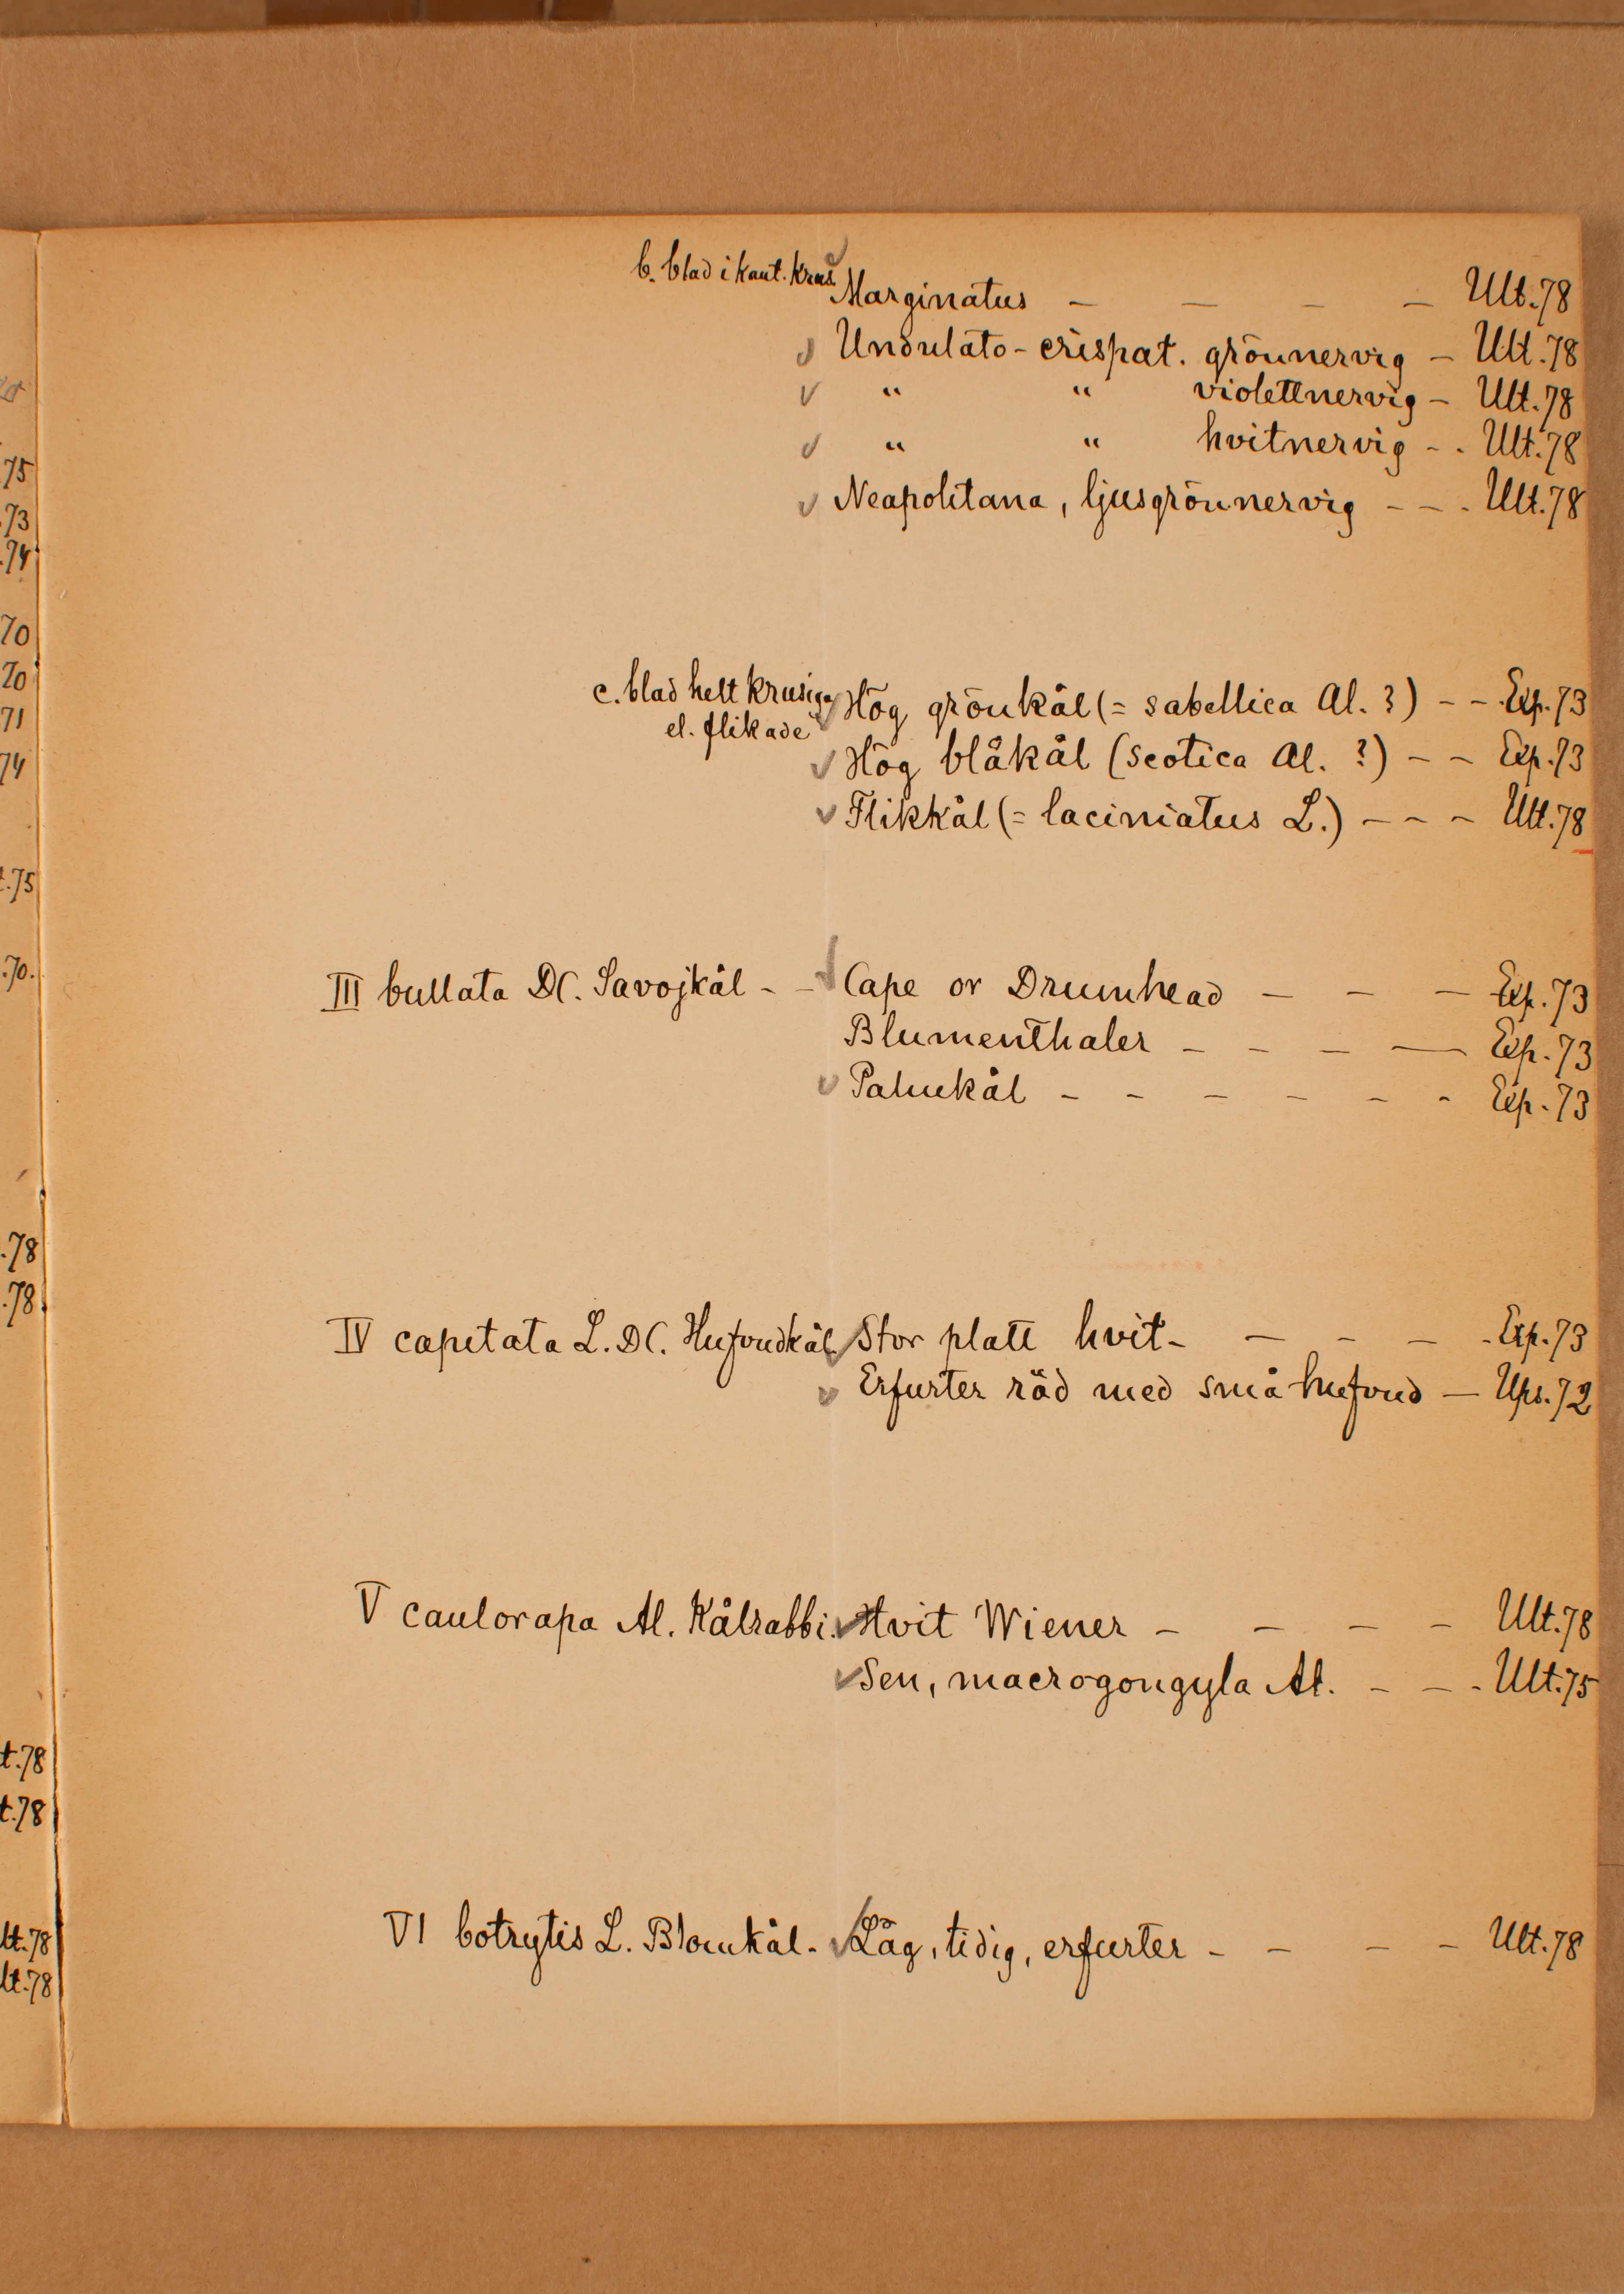 b. blad i kant. krus. Marginatus - - - - Ult. 78
Undulato-crispat. grönnervig - Ult. 78
" " violettnervig - Ult. 78
" " hvitnervig - - Ult. 78
Neapolitana, ljusgrönnervig - - - Ult. 78
c. blad helt krusiga Hög grönkål (= sabellica Al. ?) - - Exp. 73
el. flikade
Hög blåkål (scotica Al. ?) - - Exp. 73
Flikkål (= laciniatus L.) - - - Ult. 78
III bullata DC. Savojkål - - Cape or Drumhead - - - Exp. 73
Blumenthaler - - - - Exp. 73
Palmkål - - - - - - Exp. 73
IV capitata L. DC. Hufvudkål Stor platt hvit - - - - - Exp. 73
Erfurter röd med små hufvud - Ups. 72
V caulorapa Al. Kålrabbi. Hvit Wiener - - - - Ult. 78
Sen, macrogongyla Al. - - - Ult. 75
VI botrytis L. Blomkål - Låg, tidig, erfurter - - - - Ult. 78
75
.73
.74
70
70
71
74
t.75
.70.
.78
.78
t.78
t.78
lt.78
lt.78